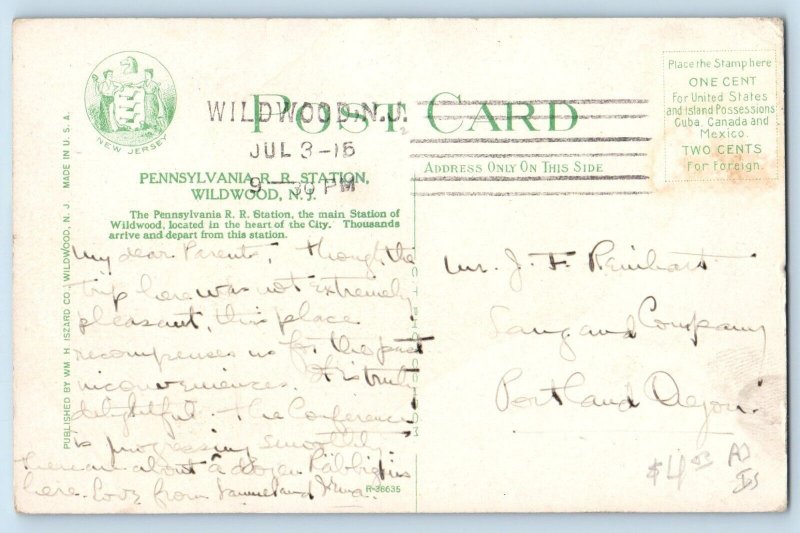 NEW JERSEY
POST CARD
WILDWOOD, N.J.
JUL 3-15
9 - 30 PM
Place the Stamp here
ONE CENT
For United States
and Island Possessions
Cuba, Canada and
Mexico.
TWO CENTS
For Foreign.
PENNSYLVANIA R. R. STATION,
WILDWOOD, N. J.
ADDRESS ONLY ON THIS SIDE
The Pennsylvania R. R. Station, the main Station of
Wildwood, located in the heart of the City. Thousands
arrive and depart from this station.
PUBLISHED BY WM. H. ISZARD CO., WILDWOOD, N. J. MADE IN U. S. A.
My dear Parents, Though the
trip here was not extremely
pleasant, this place
recompenses us for the past
inconveniences. It is truly
delightful. The Conference
is progressing smoothly.
There are about a dozen Rabbis
here. Love from Samuel and Irma.
R-36635
Mr. J. F. Reinhart
Company
Portland Oregon.
$4